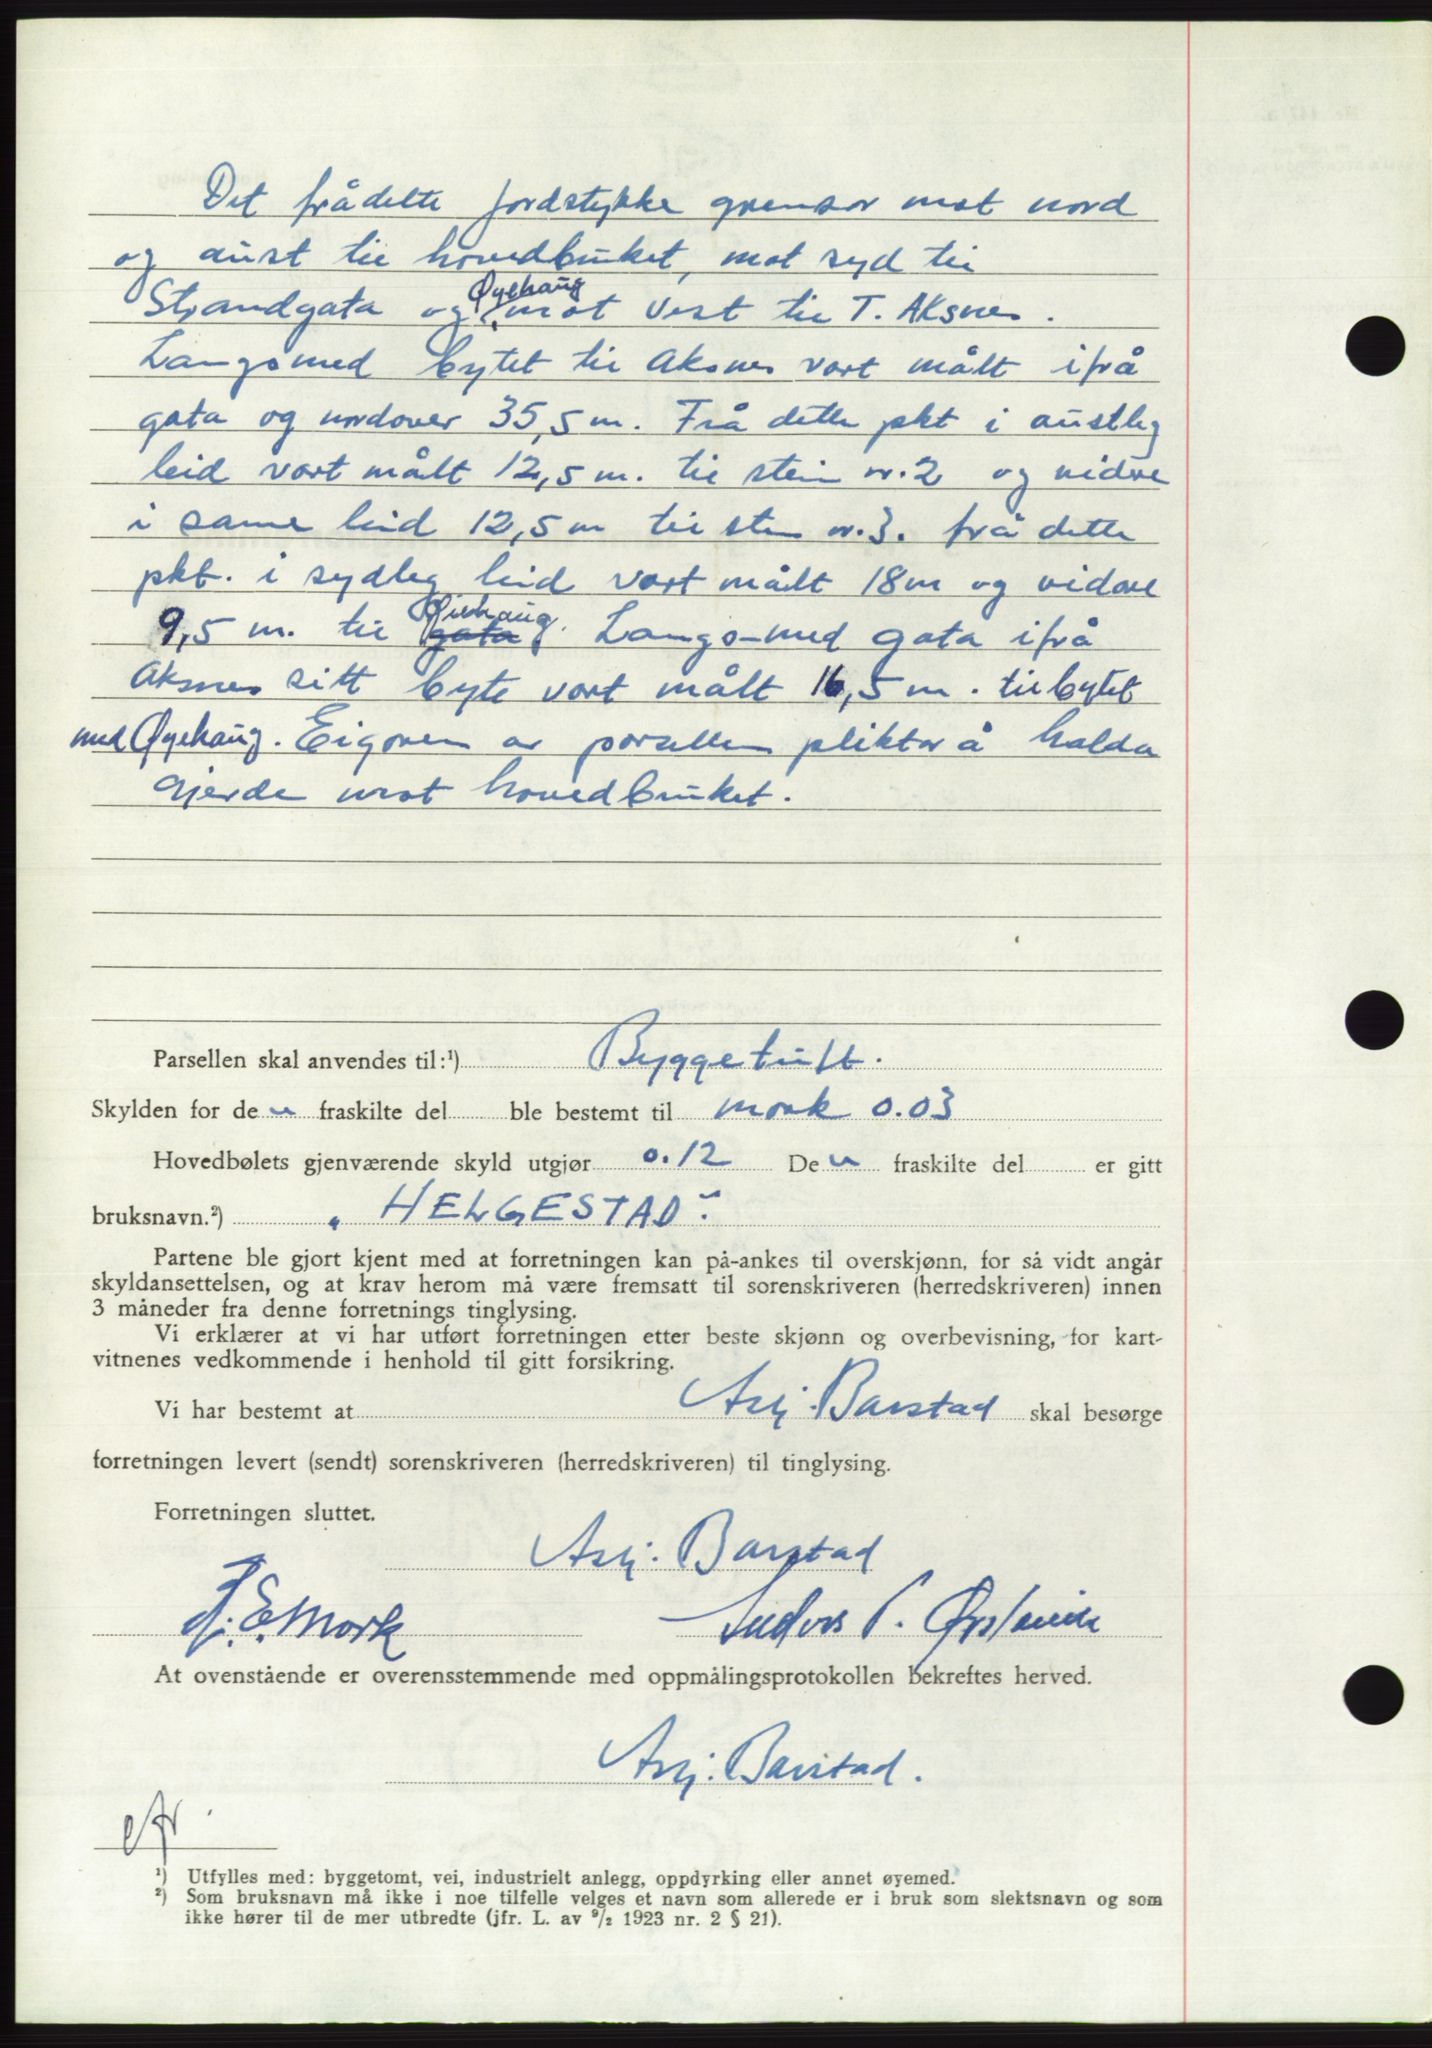 Det frådelte jordstykke grensar mot nord
og aust til hovedbruket, mot syd til
Strandgata og Øyehaug mot vest til T. Aksnes.
Langsmed bytet til Aksnes vart målt ifrå
gata og nordover 35,5 m. Frå dette pkt i austleg
leid vart målt 12,5 m. til stein nr. 2 og vidare
i same leid 12,5 m til sten nr. 3. frå dette
pkt. i sydleg leid vart målt 18 m og vidare
9,5 m. til gata Øiehaug. Langs-med gata ifrå
Aksnes sitt byte vart målt 16,5 m. til bytet
med Øyehaug. Eigaren av parsellen pliktar å halda
gjerde mot hovedbruket.
Parsellen skal anvendes til:¹) Byggetuft.
Skylden for den fraskilte del ble bestemt til mark 0.03
Hovedbølets gjenværende skyld utgjør 0.12 Den fraskilte del er gitt
bruksnavn.²) „HELGESTAD“.
Partene ble gjort kjent med at forretningen kan på-ankes til overskjønn, for så vidt angår
skyldansettelsen, og at krav herom må være fremsatt til sorenskriveren (herredskriveren) innen
3 måneder fra denne forretnings tinglysing.
Vi erklærer at vi har utført forretningen etter beste skjønn og overbevisning, for kart-
vitnenes vedkommende i henhold til gitt forsikring.
Vi har bestemt at Asbj. Barstad skal besørge
forretningen levert (sendt) sorenskriveren (herredskriveren) til tinglysing.
Forretningen sluttet.
Asbj. Barstad
E. Mork Anders P. Ørstavik
At ovenstående er overensstemmende med oppmålingsprotokollen bekreftes herved.
Asbj. Barstad.
¹) Utfylles med: byggetomt, vei, industrielt anlegg, oppdyrking eller annet øyemed.
²) Som bruksnavn må ikke i noe tilfelle velges et navn som allerede er i bruk som slektsnavn og som
ikke hører til de mer utbredte (jfr. L. av 9/2 1923 nr. 2 § 21).